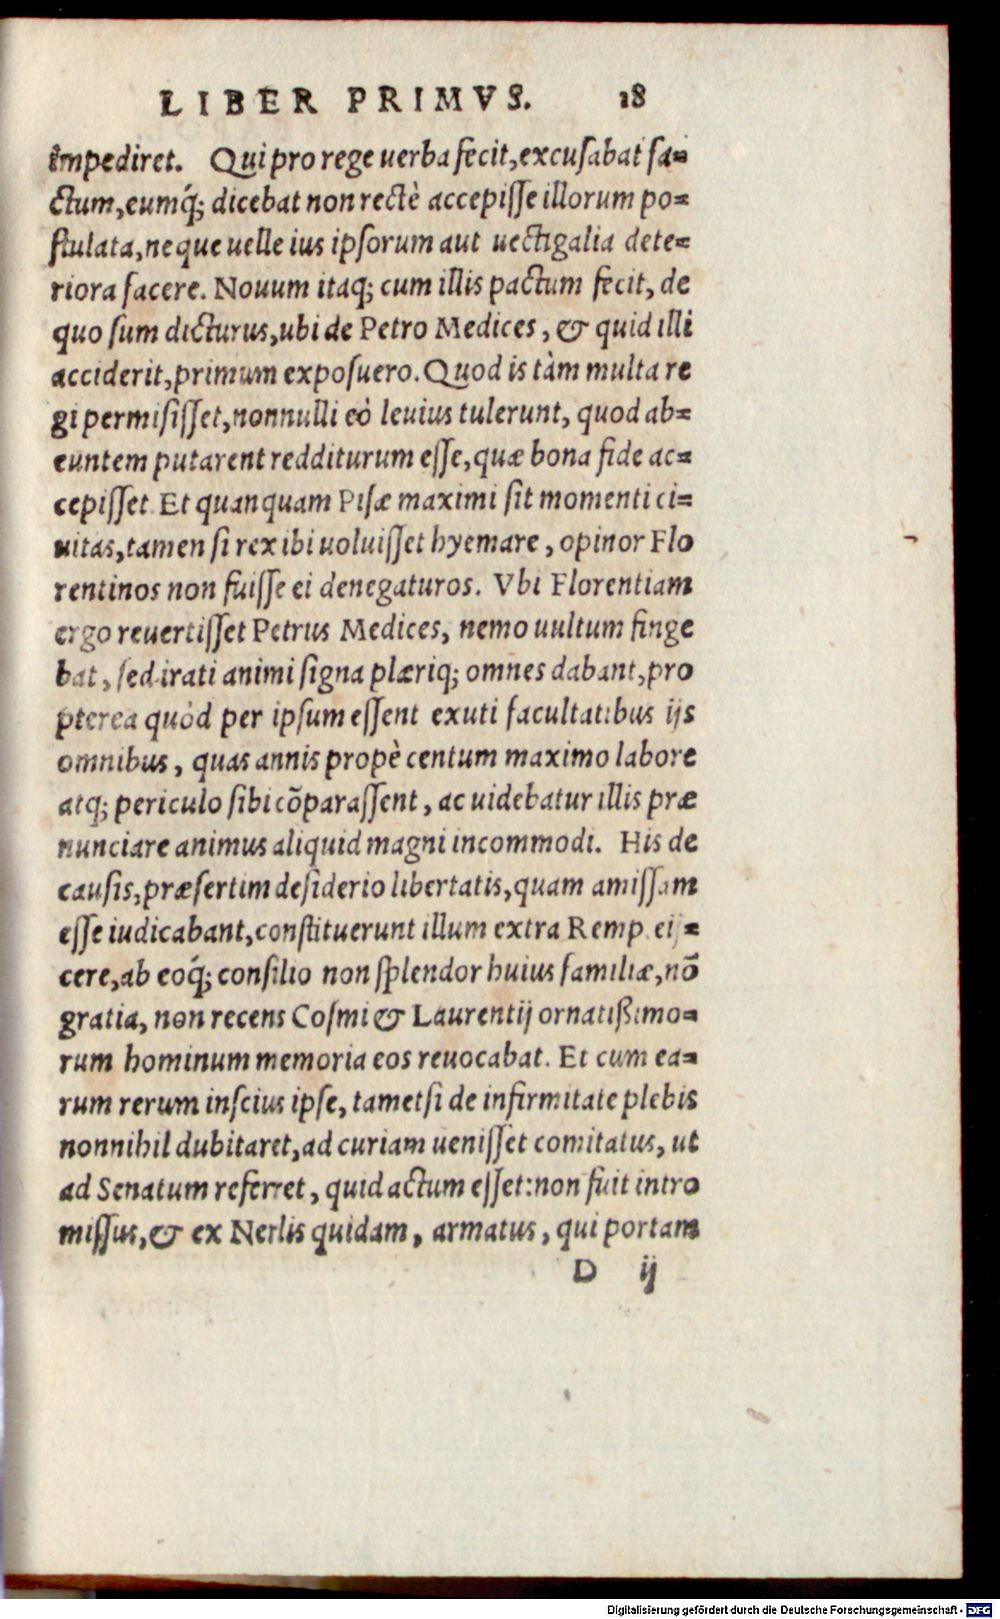 LIBER PRIMVS. 18
impediret. Qui pro rege uerba fecit, excusabat fa⸗
ctum, eumq́; dicebat non rectè accepisse illorum po⸗
stulata, neque uelle ius ipsorum aut uectigalia dete⸗
riora facere. Nouum itaq; cum illis pactum fecit, de
quo sum dicturus, ubi de Petro Medices, & quid illi
acciderit, primum exposuero. Quod is tàm multa re
gi permisisset, nonnulli eò leuius tulerunt, quod ab⸗
euntem putarent redditurum esse, quæ bona fide ac⸗
cepisset. Et quanquam Pisæ maximi sit momenti ci⸗
uitas, tamen si rex ibi uoluisset hyemare, opinor Flo
rentinos non fuisse ei denegaturos. Vbi Florentiam
ergo reuertisset Petrus Medices, nemo uultum finge
bat, sed irati animi signa plæriq; omnes dabant, pro
pterea quòd per ipsum essent exuti facultatibus ijs
omnibus, quas annis propè centum maximo labore
atq; periculo sibi cõparassent, ac uidebatur illis præ
nunciare animus aliquid magni incommodi. His de
causis, præsertim desiderio libertatis, quam amissam
esse iudicabant, constituerunt illum extra Remp. eij⸗
cere, ab eoq́; consilio non splendor huius familiæ, nõ
gratia, non recens Cosmi & Laurentij ornatißimo⸗
rum hominum memoria eos reuocabat. Et cum ea⸗
rum rerum inscius ipse, tametsi de infirmitate plebis
nonnihil dubitaret, ad curiam uenisset comitatus, ut
ad Senatum referret, quid actum esset: non fuit intro
missus, & ex Nerlis quidam, armatus, qui portam
D ij
Digitalisierung gefördert durch die Deutsche Forschungsgemeinschaft - DFG